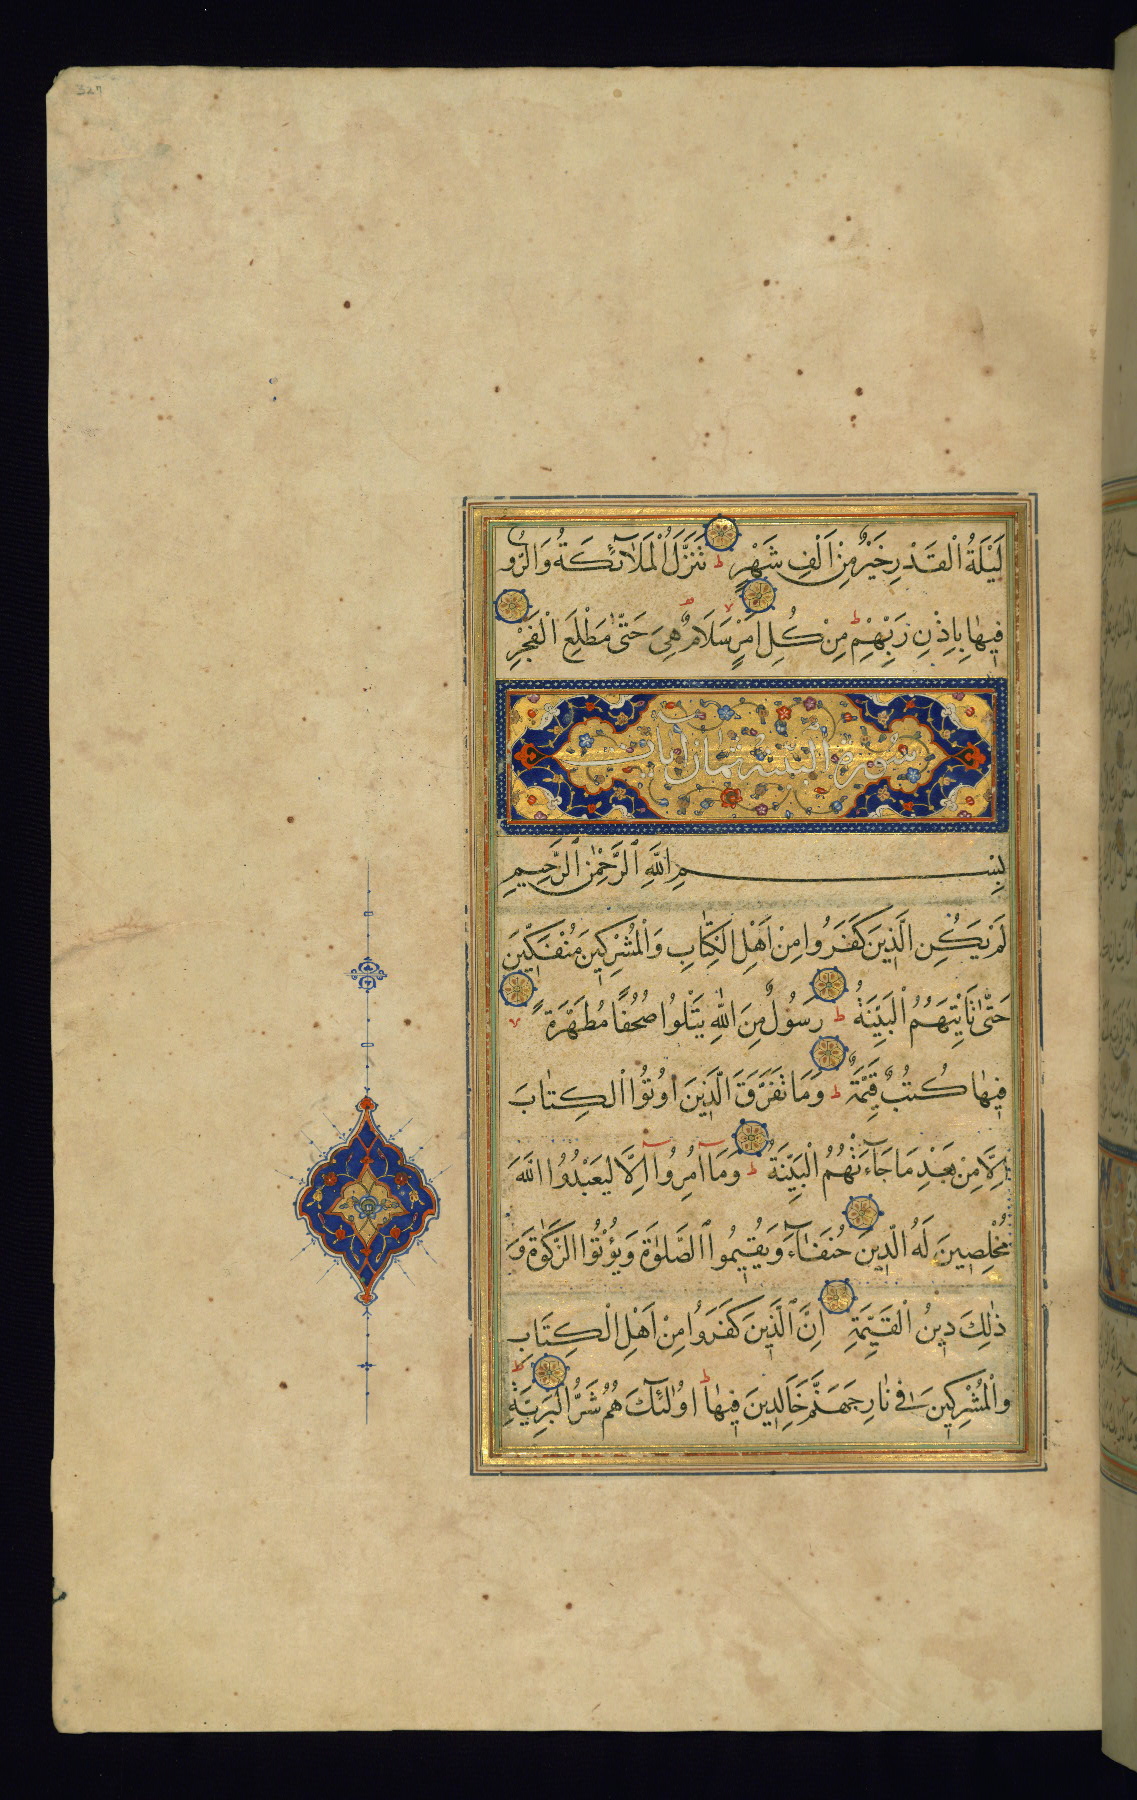 327
لَيْلَةُ الْقَدْرِ خَيْرٌ مِنْ اَلْفِ شَهْرٍ ط تَنَزَّلُ الْمَلٰٓائِكَةُ وَالرُّو
فِيهٰا بِاِذْنِ رَبِّهِمْ ط مِنْ كُلِّ اَمْرٍ سَلَامٌ هِىَ حَتّٰى مَطْلَعِ الْفَجْرِ
سورة البينة ثمان آيات
بِسْمِ اللّٰهِ الرَّحْمٰنِ الرَّحِيمِ
لَمْ يَكُنِ الَّذِينَ كَفَرُوا مِنْ اَهْلِ الْكِتٰابِ وَالْمُشْرِكِينَ مُنْفَكِّينَ
حَتّٰى تَاْتِيَهُمُ الْبَيِّنَةُ ط رَسُولٌ مِنَ اللّٰهِ يَتْلُوا صُحُفًا مُطَهَّرَةً
فِيهٰا كُتُبٌ قَيِّمَةٌ ط وَمَا تَفَرَّقَ الَّذِينَ اُوتُوا الْكِتٰابَ
اِلَّا مِنْ بَعْدِ مَا جَآءَتْهُمُ الْبَيِّنَةُ ط وَمَآ اُمِرُوٓا اِلَّا لِيَعْبُدُوا اللّٰهَ
مُخْلِصِينَ لَهُ الدِّينَ حُنَفٰآءَ وَيُقِيمُوا الصَّلٰوةَ وَيُؤْتُوا الزَّكٰوةَ وَ
ذٰلِكَ دِينُ الْقَيِّمَةِ اِنَّ الَّذِينَ كَفَرُوا مِنْ اَهْلِ الْكِتَابِ
وَالْمُشْرِكِينَ فِى نٰارِ جَهَنَّمَ خَالِدِينَ فِيهٰا ط اُولٰٓئِكَ هُمْ شَرُّ الْبَرِيَّةِ ط